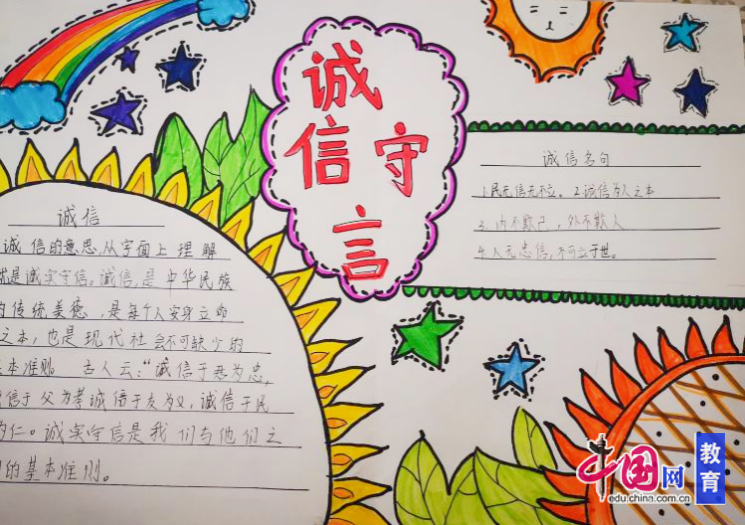 诚信守言
诚信
诚信的意思,从字面上理解
就是诚实守信。诚信,是中华民族
的传统美德,是每个人安身立命
之本,也是现代社会不可缺少的
基本准则。古人云:“诚信于君为忠,
诚信于父为孝诚信于友为义,诚信于民
为仁。诚实守信是我们与他们之
间的基本准则。
诚信名句
1.民无信无不立。2.诚信为人之本
3.内不欺己,外不欺人
4.人无忠信,不可立于世。
中国网
edu.china.com.cn
教育